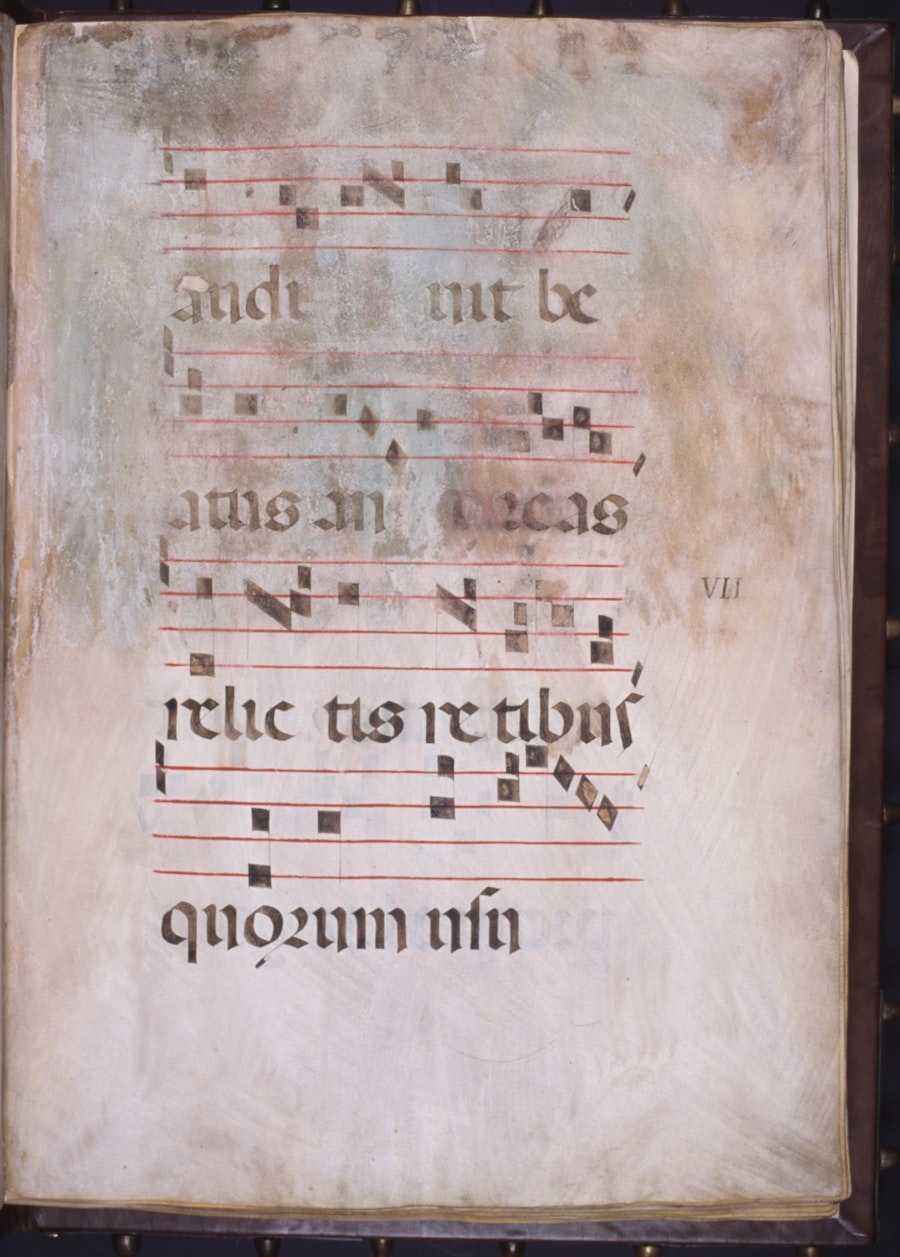 audi uit be
atus an dreas
VII
relic tis re tibus
quorum usu